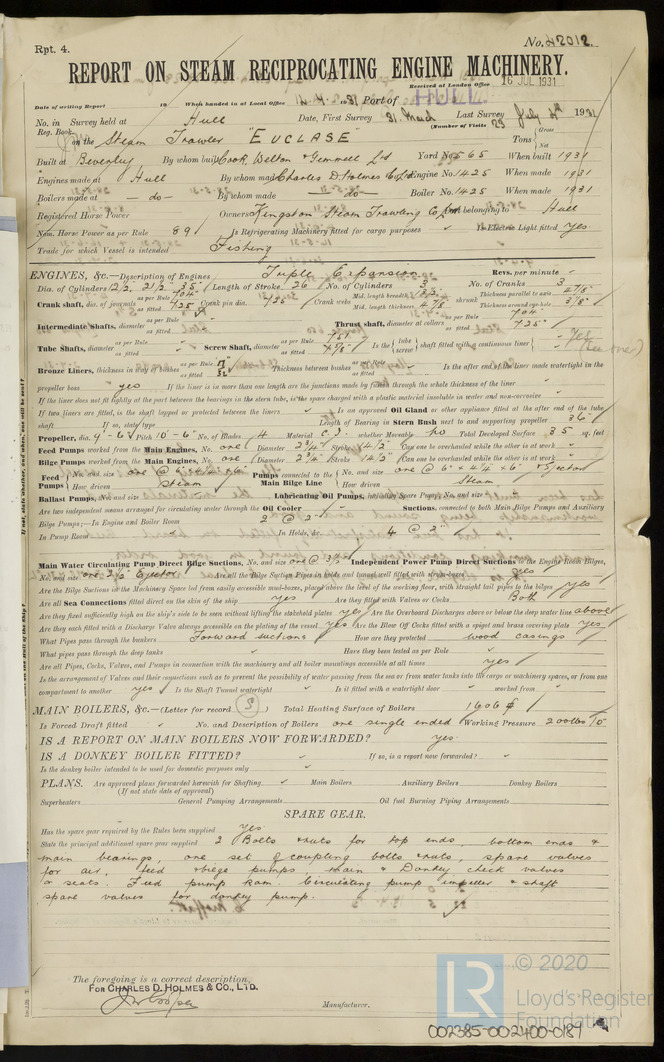 Rpt. 4.
No. 42012.
REPORT ON STEAM RECIPROCATING ENGINE MACHINERY.
Received at London Office 16 JUL 1931
Date of writing Report 19 When handed in at Local Office 14. 7. 1931 Port of HULL
No. in Survey held at Hull Date, First Survey 31 March Last Survey July 1931
Reg. Book. (Number of Visits 23
on the Steam Trawler "EUCLASE" Tons { Gross Net
Built at Beverley By whom built Cook, Welton & Gemmell Ld Yard No. 565 When built 1931
Engines made at Hull By whom made Charles D. Holmes & Co Ld Engine No. 1425 When made 1931
Boilers made at — do — By whom made — do — Boiler No. 1425 When made 1931
Registered Horse Power Owners Kingston Steam Trawling Co Port belonging to Hull
Nom. Horse Power as per Rule 89 Is Refrigerating Machinery fitted for cargo purposes Is Electric Light fitted Yes.
Trade for which Vessel is intended Fishing
ENGINES, &c.—Description of Engines Triple Expansion Revs. per minute
Dia. of Cylinders 12½ 21½ 35 Length of Stroke 26 No. of Cylinders 3 No. of Cranks 3
Crank shaft, dia. of journals as per Rule 7.04 as fitted 7.25 Crank pin dia. 7.25 Crank webs Mid. length breadth Mid. length thickness 4 7/8 shrunk Thickness parallel to axis 4 7/8 Thickness around eye-hole 3 1/8
Intermediate Shafts, diameter as per Rule as fitted Thrust shaft, diameter at collars as per Rule 7.04 as fitted 7.25
Tube Shafts, diameter as per Rule as fitted Screw Shaft, diameter as per Rule as fitted Is the { tube screw } shaft fitted with a continuous liner { Yes
Bronze Liners, thickness in way of bushes as per Rule as fitted Thickness between bushes as per Rule as fitted Is the after end of the liner made watertight in the
propeller boss yes If the liner is in more than one length are the junctions made by fusion through the whole thickness of the liner
If the liner does not fit tightly at the part between the bearings in the stern tube, is the space charged with a plastic material insoluble in water and non-corrosive
If two liners are fitted, is the shaft lapped or protected between the liners Is an approved Oil Gland or other appliance fitted at the after end of the tube
shaft If so, state type Length of Bearing in Stern Bush next to and supporting propeller 36"
Propeller, dia. 9'-6" Pitch 10'-6" No. of Blades 4 Material C.I. whether Moveable no Total Developed Surface 35 sq. feet
Feed Pumps worked from the Main Engines, No. one Diameter 2¾" Stroke 14½" Can one be overhauled while the other is at work
Bilge Pumps worked from the Main Engines, No. one Diameter 2¾" Stroke 14½" Can one be overhauled while the other is at work
Feed Pumps { No. and size one @ 6" x 4¼" x 6" How driven Steam Pumps connected to the Main Bilge Line { No. and size one @ 6" x 4¼" x 6" & Ejector How driven Steam
Ballast Pumps, No. and size Lubricating Oil Pumps, including Spare Pump, No. and size
Are two independent means arranged for circulating water through the Oil Cooler Suctions, connected to both Main Bilge Pumps and Auxiliary
Bilge Pumps;—In Engine and Boiler Room 2 @ 2"
In Pump Room In Holds, &c. 4 @ 2"
Main Water Circulating Pump Direct Bilge Suctions, No. and size one @ 3½" Independent Power Pump Direct Suctions to the Engine Room Bilges,
No. and size one 2½" Ejector Are all the Bilge Suction Pipes in holds and tunnel well fitted with strum-boxes yes
Are the Bilge Suctions in the Machinery Space led from easily accessible mud-boxes, placed above the level of the working floor, with straight tail pipes to the bilges yes
Are all Sea Connections fitted direct on the skin of the ship yes Are they fitted with Valves or Cocks Both
Are they fixed sufficiently high on the ship's side to be seen without lifting the stokehold plates yes Are the Overboard Discharges above or below the deep water line above
Are they each fitted with a Discharge Valve always accessible on the plating of the vessel yes Are the Blow Off Cocks fitted with a spigot and brass covering plate yes
What Pipes pass through the bunkers Forward suctions How are they protected wood casings
What pipes pass through the deep tanks Have they been tested as per Rule
Are all Pipes, Cocks, Valves, and Pumps in connection with the machinery and all boiler mountings accessible at all times yes
Is the arrangement of Valves and their connections such as to prevent the possibility of water passing from the sea or from water tanks into the cargo or machinery spaces, or from one
compartment to another yes Is the Shaft Tunnel watertight Is it fitted with a watertight door worked from
MAIN BOILERS, &c.—(Letter for record S) Total Heating Surface of Boilers 1606
Is Forced Draft fitted No. and Description of Boilers one single ended Working Pressure 200 lbs
IS A REPORT ON MAIN BOILERS NOW FORWARDED? yes.
IS A DONKEY BOILER FITTED? If so, is a report now forwarded?
Is the donkey boiler intended to be used for domestic purposes only
PLANS. Are approved plans forwarded herewith for Shafting Main Boilers Auxiliary Boilers Donkey Boilers
(If not state date of approval)
Superheaters General Pumping Arrangements Oil fuel Burning Piping Arrangements
SPARE GEAR.
Has the spare gear required by the Rules been supplied Yes
State the principal additional spare gear supplied 2 Bolts & nuts for top ends, bottom ends &
main bearings, one set of coupling bolts & nuts, spare valves
for air, feed & bilge pumps, main & Donkey check valves
& seats. Feed pump ram. Circulating pump impeller & shaft
spare valves for donkey pump.
The foregoing is a correct description,
FOR CHARLES D. HOLMES & CO., LTD.
Manufacturer.
© 2020
LR
Lloyd's Register
Foundation
002385-002400-0189